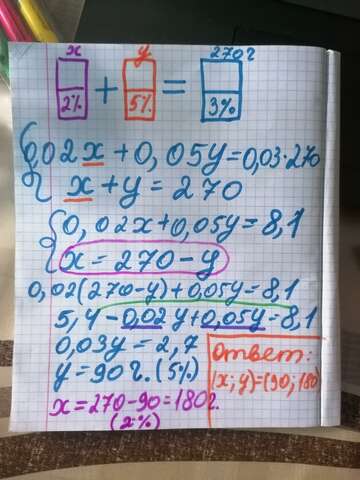 x y 270г
2% + 5% = 3%
0,02x + 0,05y = 0,03·270
x + y = 270
0, 02x + 0,05y = 8,1
x = 270 - y
0,02(270-y) + 0,05y = 8,1
5,4 - 0,02y + 0,05y = 8,1
0,03y = 2,7
y = 90г. (5%)
x = 270 - 90 = 180г.
(2%)
Ответ:
(x; y) = (90; 180)